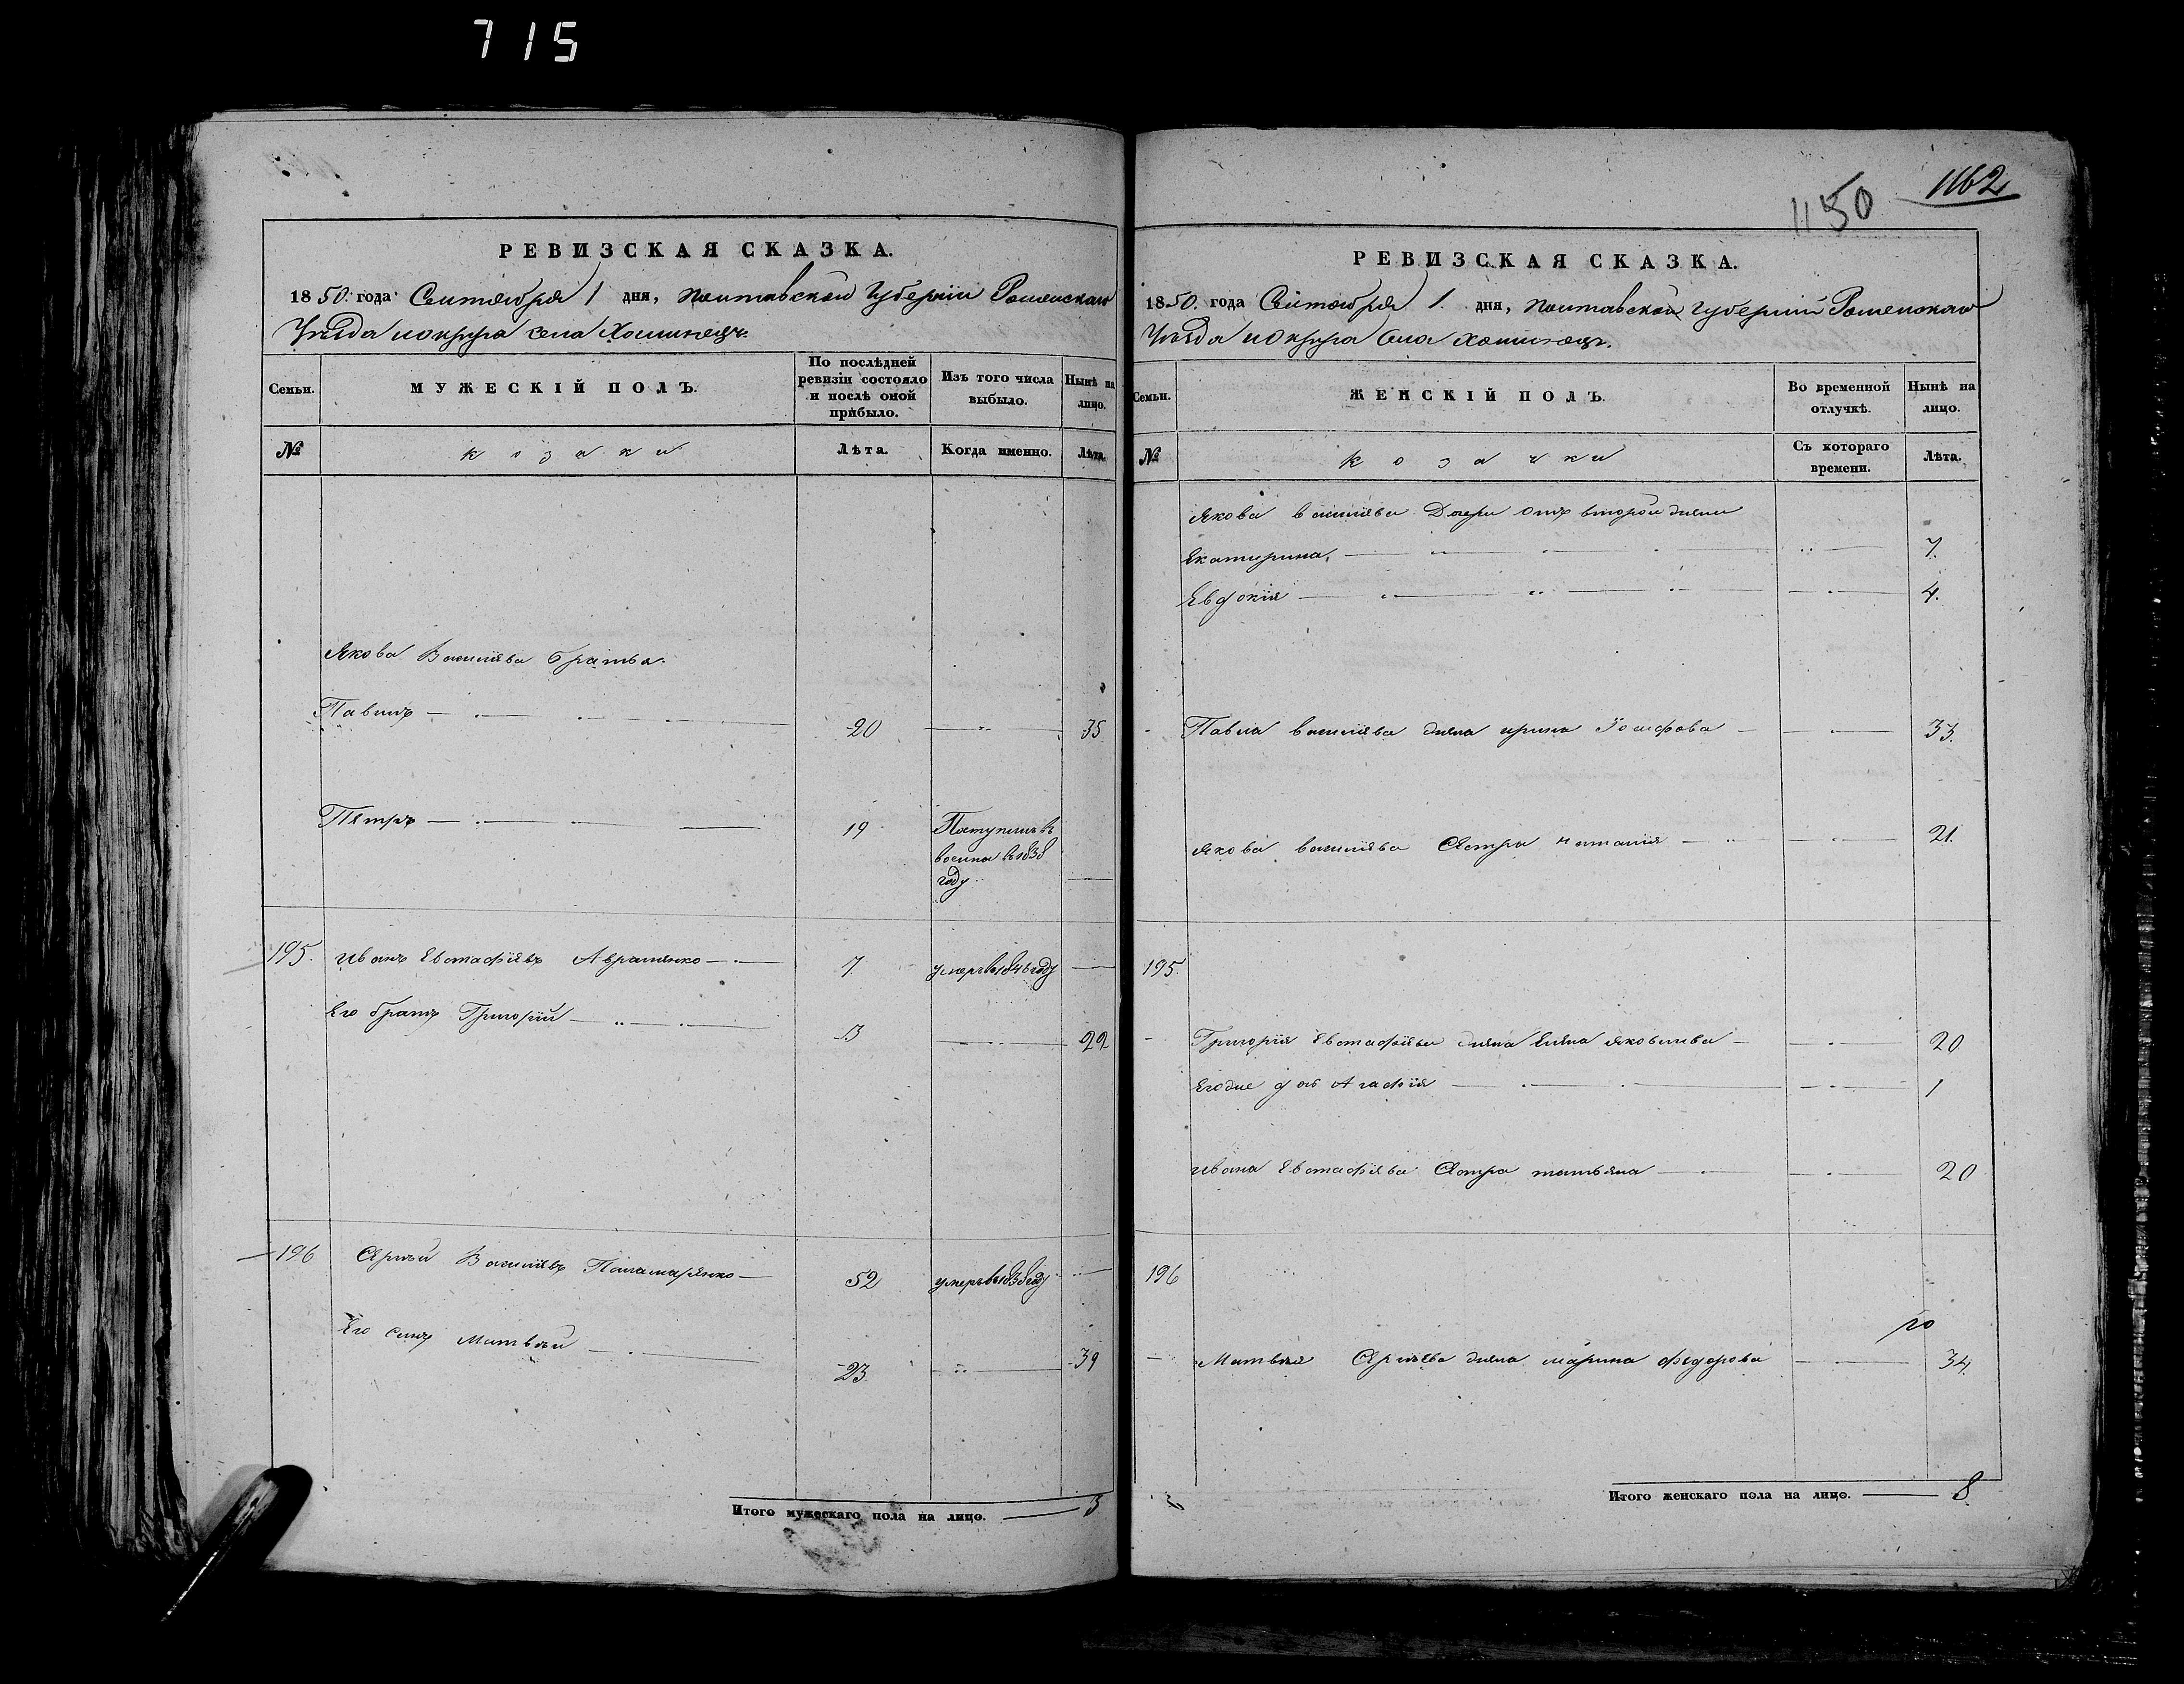 715
РЕВИЗСКАЯ СКАЗКА.
1850 года Сентября 1 дня, Полтавской Губернии Роменскаго
Уѣзда села
Семьи.
МУЖЕСКІЙ ПОЛЪ.
По послѣдней ревизіи состояло и послѣ оной прибыло.
Изъ того числа выбыло.
Нынѣ на лицо.
№
козаки
Лѣта.
Когда именно.
Лѣта.
Якова Васильева братья.
Павелъ 20 35
Петръ 19 Поступилъ въ
1838
году
195. Иванъ Евстафіевъ Авраменко 7 умеръ въ 1846 году
Его братъ Григорій 22
196 Сергѣй Васильевъ Паламаренко 52 умеръ въ 1838 году
Его сынъ Матвѣй 23 39
Итого мужескаго пола на лицо. 3
1150 1162
РЕВИЗСКАЯ СКАЗКА.
1850. года Сентября 1. дня, Полтавской Губерніи Роменскаго
Уѣзда села
Семьи.
ЖЕНСКІЙ ПОЛЪ.
Во временной отлучкѣ.
Нынѣ на лицо.
№
козачки
Съ котораго времени.
Лѣта.
Якова Васильева Дочери отъ второй жены
Екатерина, 7.
Евдокія 4.
Павла Васильева жена Ирина Іосифова 33.
Якова Васильева Сестра Наталія 21.
195.
Григорія Евстафіева жена Елена Яковлева 20
Его же дочь Агафія 1
Ивана Евстафіева Сестра Татьяна 20
196
Матвѣя Сергѣева жена Марина Федорова 34.
Итого женскаго пола на лицо. 8.